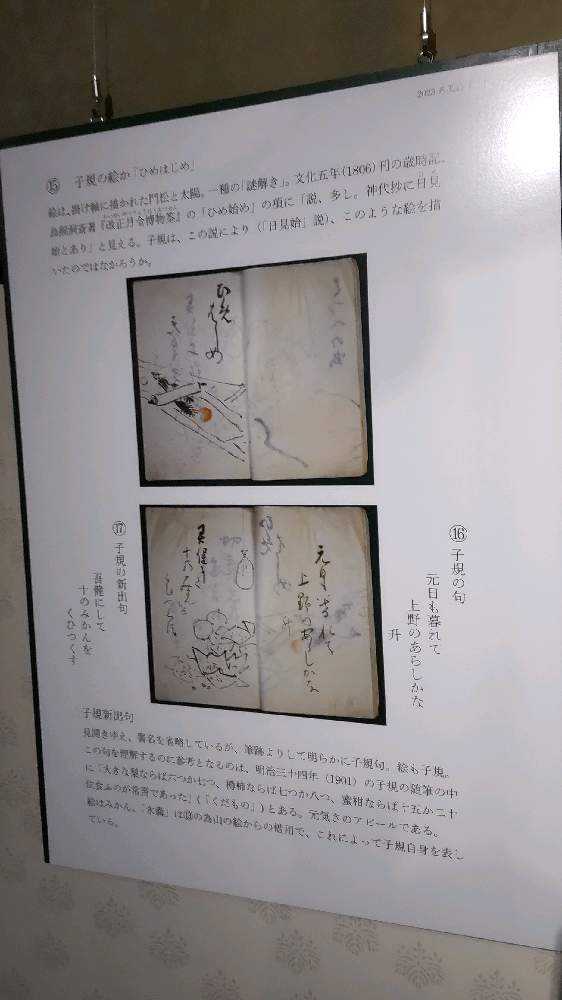 ⑮ 子規の絵か「ひめはじめ」
絵は、掛け軸に描かれた門松と太陽。一種の「謎解き」。文化五年(1806)刊の歳時記、
鳥飼洞斎著『改正月令博物筌』の「ひめ始め」の項に「説、多し。神代抄に日見
始とあり」と見える。子規は、この説により(「日見始」説)、このような絵を描
いたのではなかろうか。
ひめ
はじめ
⑯ 子規の句
元日も暮れて
上野のあらしかな
升
元日も暮れて
上野のあらしかな
升
⑰ 子規の新出句
吾健にして
十のみかんを
くひつくす
吾健にして
十のみかんを
くひつくす
子規新出句
見開きゆえ、署名を省略しているが、筆跡よりして明らかに子規句。絵も子規。
この句を理解するのに参考となるものは、明治三十四年(1901)の子規の随筆の中
に「大きな梨ならば六つか七つ、樽柿ならば七つか八つ、蜜柑ならば十五か二十
位食ふのが常習であった」(「くだもの」)とある。元気さのアピールである。
絵はみかん。「水義」は為山の絵からの借用で、これによって子規自身を表し
ている。